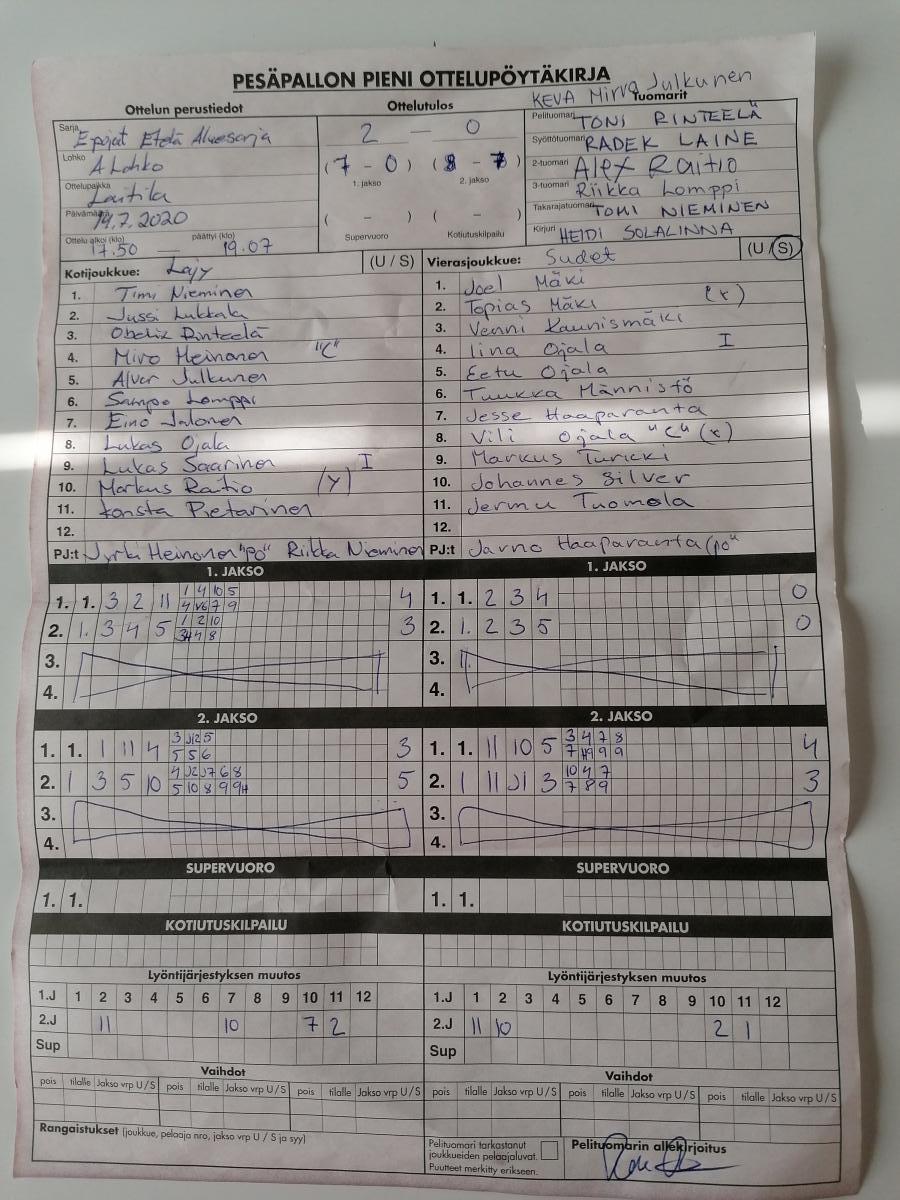 PESÄPALLON PIENI OTTELUPÖYTÄKIRJA
KEVA Mirva Julkunen
Ottelun perustiedot Ottelutulos Tuomarit
Sarja E pojat Etelä Aluesarja
Lohko A Lohko
Ottelupaikka Laitila
Päivämäärä 14.7.2020
Ottelu alkoi (klo) 17.50 — päättyi (klo) 19.07
2 — 0
(7 - 0) (8 - 7)
1. jakso 2. jakso
( - ) ( - )
Supervuoro Kotiutuskilpailu
Pelituomari TONI RINTEELÄ
Syöttötuomari RADEK LAINE
2-tuomari Alex Raitio
3-tuomari Riikka Lomppi
Takarajatuomari TOMI NIEMINEN
Kirjuri HEIDI SOLALINNA
Kotijoukkue: Lajy (U / S)
1. Timi Nieminen
2. Jussi Lukkala
3. Obelix Rinteelä
4. Miro Heinonen "C"
5. Alver Julkunen
6. Sampo Lomppi
7. Eino Jalonen
8. Lukas Ojala
9. Lukas Saarinen I
10. Markus Raitio (Y)
11. Konsta Pietarinen
12.
PJ:t Jyrki Heinonen "PÖ" Riikka Nieminen
Vierasjoukkue: Sudet (U / S)
1. Joel Mäki
2. Topias Mäki (r)
3. Venni Kaunismäki
4. Iina Ojala I
5. Eetu Ojala
6. Tuukka Männistö
7. Jesse Haaparanta
8. Vili Ojala "C" (r)
9. Markus Turicki
10. Johannes Silver
11. Jermu Tuomola
12.
PJ:t Jarno Haaparanta "pö"
1. JAKSO 1. JAKSO
1. 1. 3 2 11 1 4 10 5 4
4 V6 7 9
2. 1. 3 4 5 1 2 10 3
3H 4 8
3.
4.
1. 1. 2 3 4 0
2. 1. 2 3 5 0
3.
4.
2. JAKSO 2. JAKSO
1. 1. 1 11 4 3 J2 5 3
5 5 6
2. 1 3 5 10 4 J2 J7 6 8 5
5 10 8 9 9H
3.
4.
1. 1. 11 10 5 3 4 7 8 4
7 H9 9 9
2. 1 11 J1 3 10 4 7 3
7 8 9
3.
4.
SUPERVUORO SUPERVUORO
1. 1. 1. 1.
KOTIUTUSKILPAILU KOTIUTUSKILPAILU
Lyöntijärjestyksen muutos Lyöntijärjestyksen muutos
1.J 1 2 3 4 5 6 7 8 9 10 11 12
2.J 11 10 7 2
Sup
1.J 1 2 3 4 5 6 7 8 9 10 11 12
2.J 11 10 2 1
Sup
Vaihdot Vaihdot
pois tilalle Jakso vrp U / S pois tilalle Jakso vrp U / S pois tilalle Jakso vrp U / S
pois tilalle Jakso vrp U / S pois tilalle Jakso vrp U / S pois tilalle Jakso vrp U / S
Rangaistukset (joukkue, pelaaja nro, jakso vrp U / S ja syy)
Pelituomari tarkastanut
joukkueiden pelaajaluvat.
Puutteet merkitty erikseen.
Pelituomarin allekirjoitus